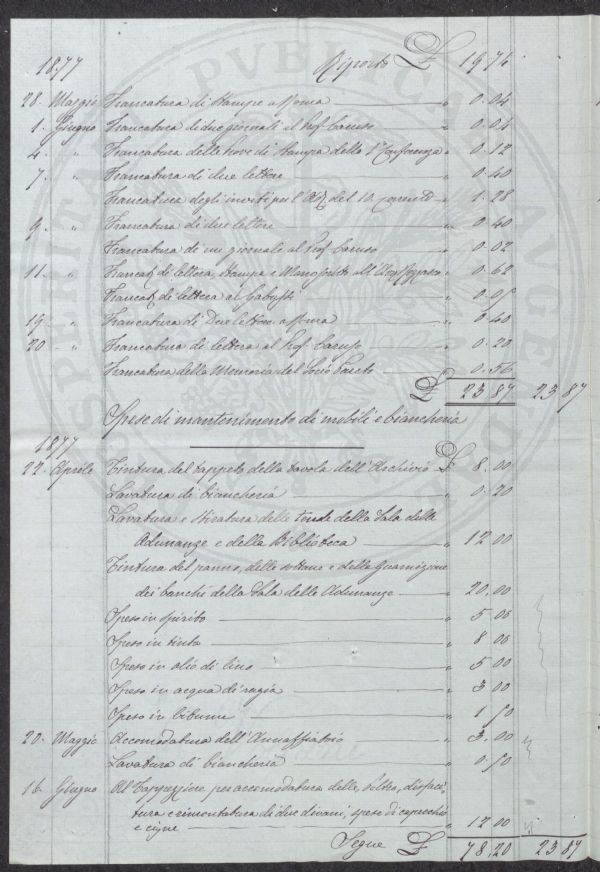 PROSPERITATI PVBLICAE AVGENDAE
1877 Riporto £ 19 74
28. Maggio Francatura di Stampe a Roma " 0. 04
1. Giugno Francatura di due giornali al Prof. Caruso " 0. 04
4 " Francatura delle bozze di Stampa della 1ª Conferenza " 0. 12
7. " Francatura di due lettere " 0. 40
Francatura degli inviti per l'Adz. del 10. corrente " 1. 28
9 " Francatura di due lettere " 0. 40
Francatura di un giornale al Prof. Caruso " 0. 02
11. " Francat. di lettera, Stampe e Manoscritto all' " 0. 62
Francat. di lettera al " 0. 05
19 " Francatura di Due lettere a Roma " 0. 40
20 " Francatura di lettera al Prof. Caruso " 0. 20
Francatura della Memoria del Socio " 0. 56
£ 23 87 23 87
Spese di mantenimento di mobili e biancheria
1877
22. Aprile Tintura del tappeto della tavola dell'Archivio £ 8. 00
Lavatura di biancheria " 0. 20
Lavatura e Stiratura delle tende della Sala delle
Adunanze e della Biblioteca " 12 00
Tintura del panno, delle sottane e della Guarnizione
dei banchi della Sala delle Adunanze " 20. 00
Speso in spirito " 5 00
Speso in tinta " 8 00
Speso in olio di lino " 5 00
Speso in acqua di ragia " 3 00
Speso in bitume " 1 50
20. Maggio Accomodatura dell'Annaffiatoio " 3. 00
Lavatura di biancheria " 0. 50
16 Giugno Al Tappezziere per accomodatura delle disfaci-
tura e rimontatura di due divani, spese di capecchio
e cigne " 12 00
Segue £ 78. 20 23 87